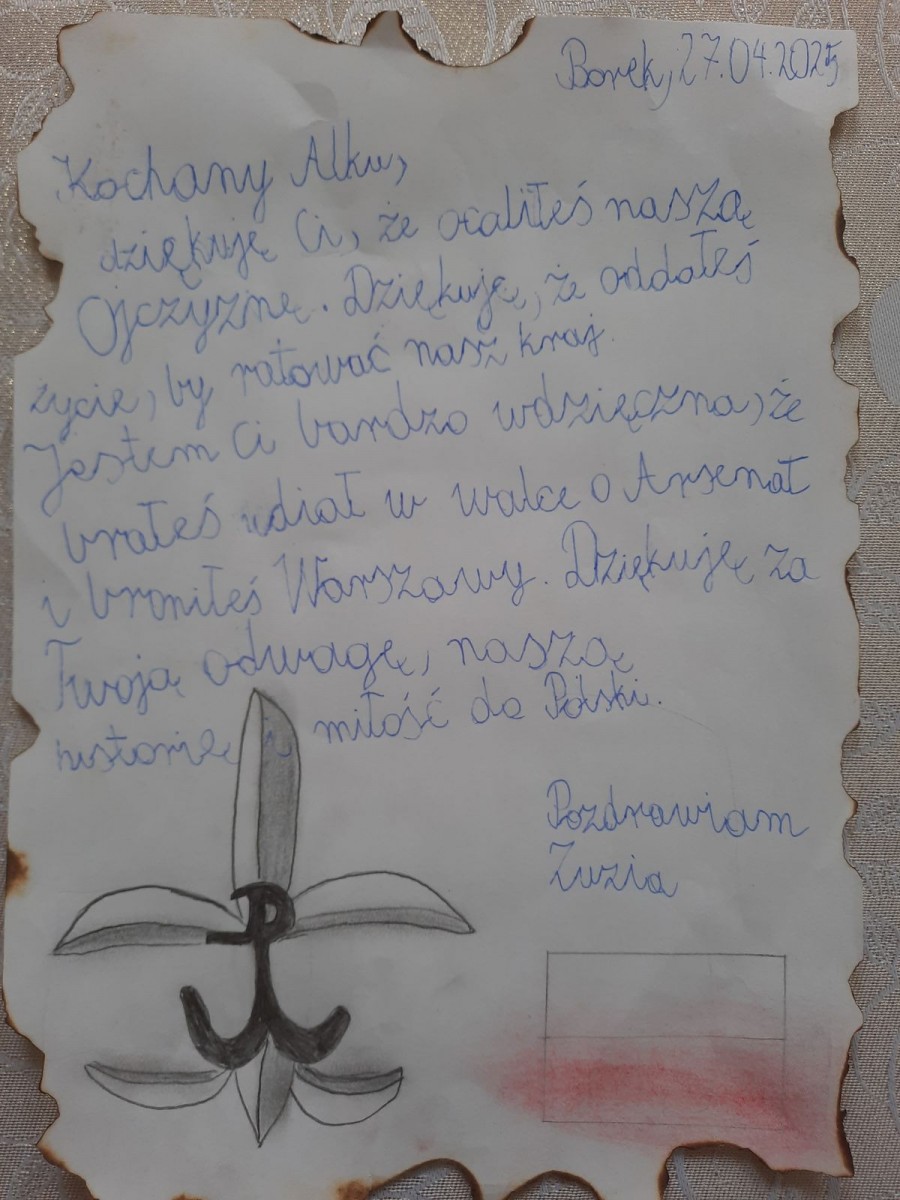 Borek, 27.04.2025
Kochany Alku,
dziękuję Ci, że ocaliłeś naszą
Ojczyznę. Dziękuję, że oddałeś
życie, by ratować nasz kraj.
Jestem Ci bardzo wdzięczna, że
brałeś udiał w walce o Arsenał
i broniłeś Warszawy. Dziękuję za
Twoją odwagę, naszą
historię i miłość do Polski.
Pozdrawiam
Zuzia
P